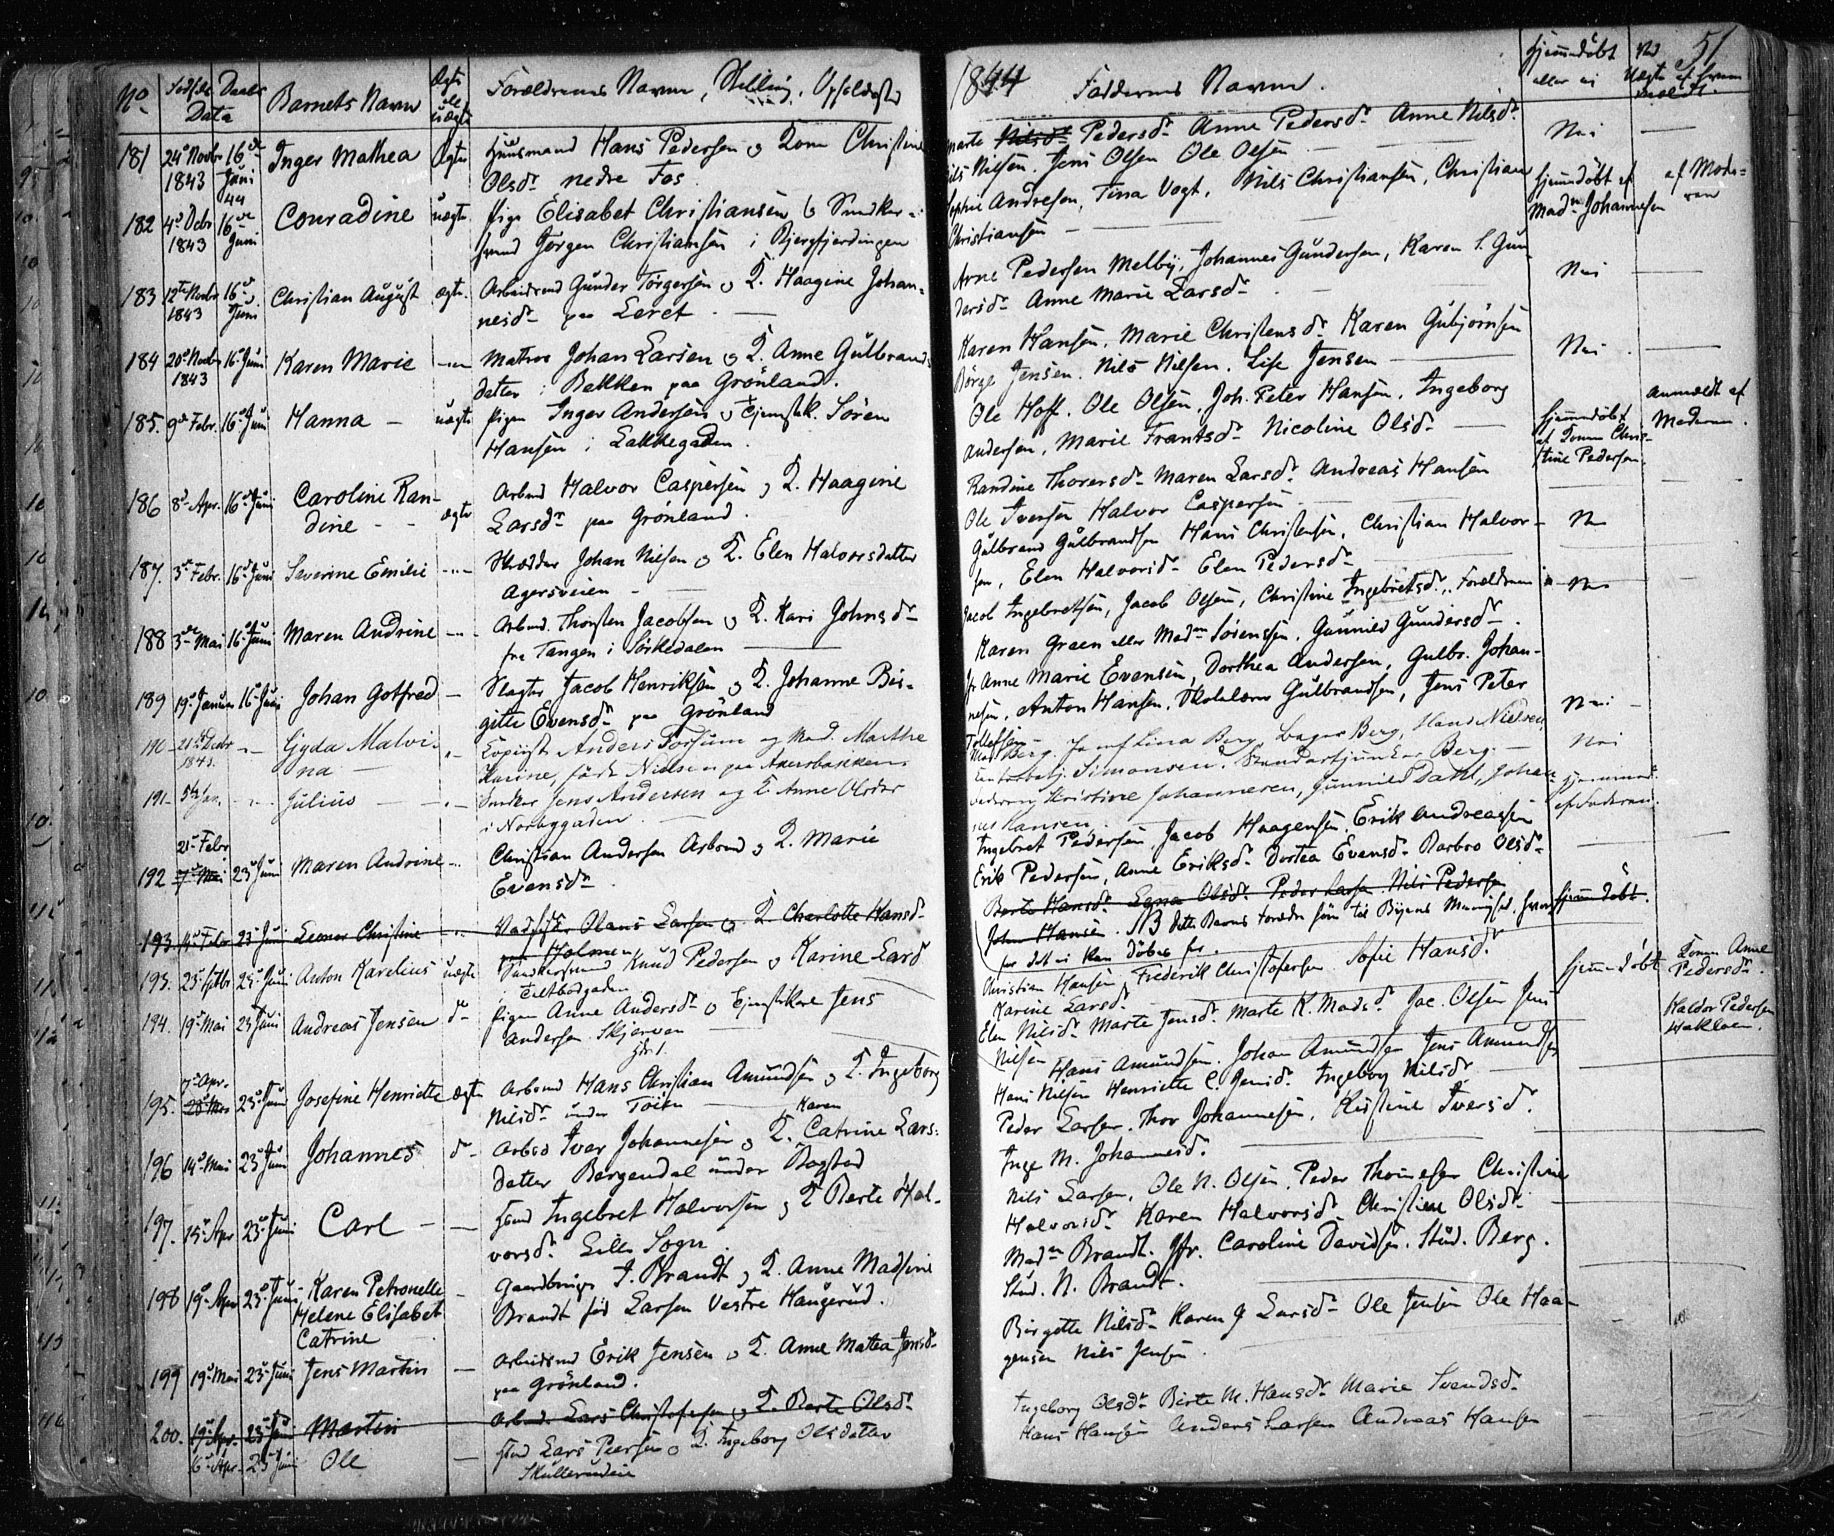 No. Fødsels Daabs Data Barnets Navn Ægte el. uægte Forældrenes Navne, Stilling, Opholdssted
1844 Faddernes Navne. Hjemmedøbt eller ei 51
181 24de Novbr 1843 16de Juni 44 Inger Mathea Ægte Huusmand Hans Pedersen og Kone Christine
Olsdr nedre Fos.
Marte Nilsdr Pedersdr Anne Pedersdr Anne Nilsdr
Nils Nilsen, Jens Olsen Ole Olsen Nei
182 4de Debr 1843 16de Juni Conradine uægte Pige Elisabet Christiansen & Snedker-
svend Jørgen Christiansen i Bjergfjerdingen
Sophie Andresen, Tina Vogt, Nils Christiansen, Christian
Christiansen Hjemmedøbt af Madm Johannesen af Mode-
ren
183 12te Novbr 1843 16de Juni Christian August ægte. Arbeidsmd Gunder Torgersen og K. Haagine Johan-
nesdr paa Leret.
Arne Pedersen Melby, Johannes Gundersen, Karen S. Gun
dersdr Anne Marie Larsdr Nei
184 20de Novbr 1843 16de Juni Karen Marie Matros Johan Larsen og K. Anne Gulbrands
datter i Bakken paa Grønland.
Karen Hansen, Marie Christensdr Karen Gubjørnsen
Børge Jensen. Nils Nilsen. Lise Jensen Nei
185. 9de Febr. 16de Juni Hanna uægte Pigen Inger Andersen og Tjenestek. Søren
Hansen i Lakkegaden.
Ole Hoff. Ole Olsen, Joh. Peter Hansen, Ingeborg
Andersen, Marie Frantsdr Nicoline Olsdr
Hjemmedøbt af Konen Chris-
stine Pedersen. Anmeldt af
Moderen.
186 8de Apr. 16de Juni Caroline Ran-
dine ægte Arbmd Halvor Caspersen og K. Haagine
Larsdr paa Grønland.
Randine Thorersdr Maren Larsdr Andreas Hansen
Ole Iversen Halvor Caspersen
187. 3de Febr. 16de Juni Severine Emilie Skrædder Johan Nilsen og K. Elen Halvorsdatter
Agersveien
Gulbrand Gulbrandsen Hans Christensen, Christian Halvor-
sen, Elen Halvorsdr Elen Pedersdr
188 3de Mai 16de Juni Maren Andrine Arbmd. Thorsten Jacobsen og K. Kari Johnsdr
fra Tangen i Sørkedalen
Jacob Ingebretsen, Jacob Olsen, Christine Ingebretsdr,
Karen Graen eller Madm Sørensen. Gunnild Gundersdr
189 19de Januar 16de Juni Johan Gotfred Slagter Jacob Henriksen og K. Johanne Bir-
gitte Evensdr paa Grønland
Jfr Anne Marie Evensen, Dorthea Andersen, Gulbr. Johan-
nesen, Anton Hansen, Skolelærer Gulbrandsen, Jens Peter
Tollefsen Nei
190 21de Decbr 1843. Gyda Malvi-
na Anders Forsum og Mad. Marthe
Karine, født Nielsen paa Akersbakken
Mad Berg, Jomf Lina Berg, Bager Berg, Hans Nielsen,
Simonsen. Standartjunker Berg. Nei
191 5te Jan. Julius Snedker Jens Andersen og K. Anne Olsdtr
i Norbygaden.
Kristine Johannesen, Gunnild Dahl, Johan-
nes Hansen.
192 21de Febr. 7de Mai 23de Juni Maren Andrine Christian Andersen Arbmd og K. Marie
Evensdr
Ingebret Pedersen. Jacob Haagensen Erik Andreassen
Erik Pedersen, Anne Eriksdr Dortea Evensdr Barbro Olsdr
193. 14de Febr 23de Juni Leonor Christine Olaus Larsen og K. Charlotte Hansdr
paa Holmen
Berte Hansdr Olsdr Peder Larsen Nils Pedersen
John Hansen. NB dette Barns Forældre Hjemmedøbt.
193. 25de Septbr 23de Juni Anton Karelius uægte Snedkersvend Knud Pedersen og Karine Larsd
i Teltbodgaden
Christian Hansen, Frederik Christofersen Sofie Hansdr
Karine Larsdr Hjemmedøbt Konen Anne
Pedersdr.
194. 19de Mai 23de Juni Andreas Jensen do Pigen Anne Andersdr og Tjenestekarl Jens
Andersen Skjerven
Elen Nilsdr Marte Jensdr Marte K. Madsdr Jac. Olsen Jens
Nilsen Haldor Pedersen
Hakloen.
195. 7de Apr. 28de 23de Juni Josefine Henriette ægte Arbmd Hans Christian Amundsen og K. Ingeborg
Nilsdr under Tøien
Hans Amundsen. Johan Amundsen Jens Amundsen
Hans Nilsen Henriette C. Jensdr. Ingeborg Nilsdr
196 14de Mai 23de Juni Johannes do Arbmd Ivar Johannesen og K. Karen Catrine Lars-
datter Bergendal under Bogstad
Peder Larsen. Thor Johannesen, Kristine Iversdr.
Inge M. Johannesdr.
197. 15de Apr 23de Juni Carl Hmd Ingebret Halvorsen og K Berte Hal-
vorsdr. Lille Sogn
Nils Larsen, Ole N. Olsen. Peder Thomesen Christine
Halvorsdr Karen Halvorsdr Christiane Olsdr.
198 19de Apr 23de Juni Karen Petronelle
Helene Elisabet
Catrine Gaardbruger J. Brandt og K. Anne Madsine
Brandt født Larsen Vestre Haugerud.
Madm Brandt. Jfr. Caroline Davidsen. Stud. Berg.
Stud. N. Brandt.
199 19de Mai 23de Juni Jens Martin Arbeidsmd Erik Jensen og K. Anne Mattea Jensdr
paa Grønland.
Birgitte Nilsdr Karen G Larsdr Ole Jensen Ole Haa-
gensen Nils Jensen
200. 19de Apr. 23de Juni Martin Arbmd. Lars Christofersen og K. Berte Olsdr
Ingeborg Olsdr Birte M. Hansdr Marie Svendsdr
16de Apr. 23de Juni Ole Hmd Lars Peersen og K. Ingeborg Olsdatter
Skullerudeie
Hans Hansen Anders Larsen Andreas Hansen